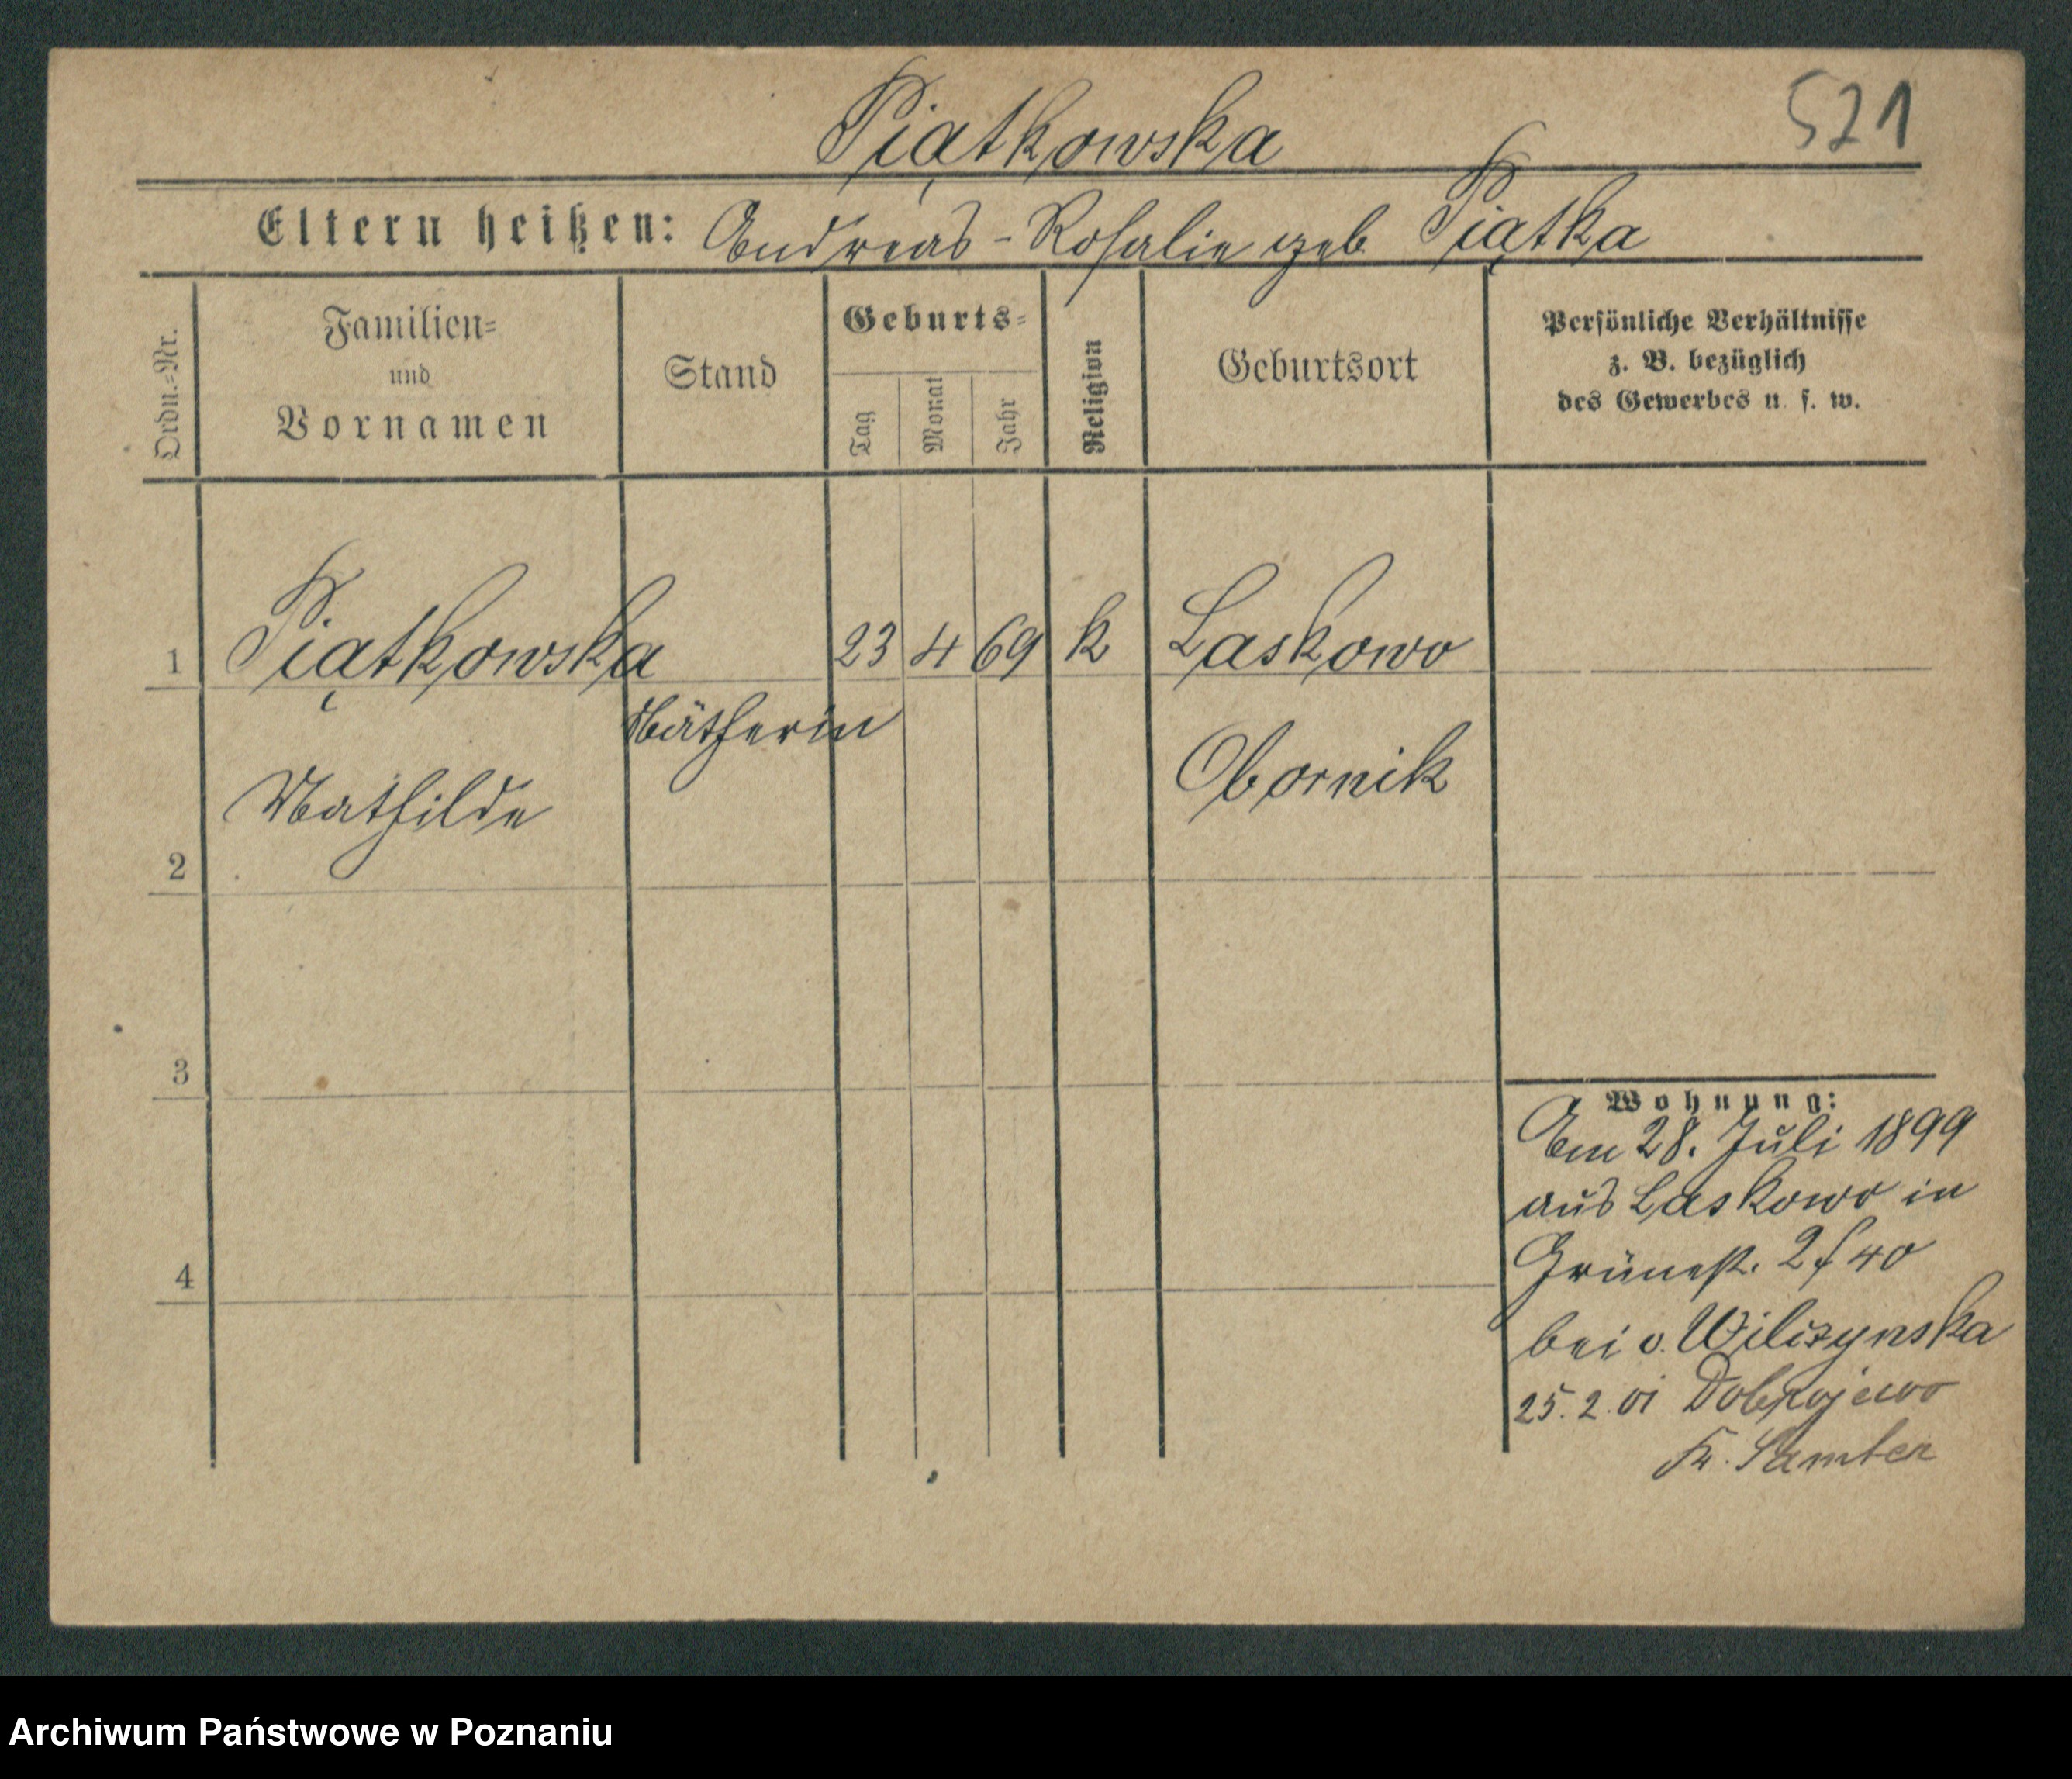 Piątkowska
521
Eltern heißen: Andreas - Rosalie geb Piątka
Ordn.=Nr.
Familien=
und
Vornamen
Stand
Geburts=
Tag
Monat
Jahr
Religion
Geburtsort
Persönliche Verhältnisse
z. B. bezüglich
des Gewerbes u. s. w.
1 Piątkowska 23 4 69 k Laskowo
Nätherin
Mathilde Obornik
2
3
4
Wohnung:
Am 28. Juli 1899
aus Laskowo in
Grünestr. 2 f 40
bei v. Wilczynska
25.2.01 Dobrojewo
Kr. Samter
Archiwum Państwowe w Poznaniu